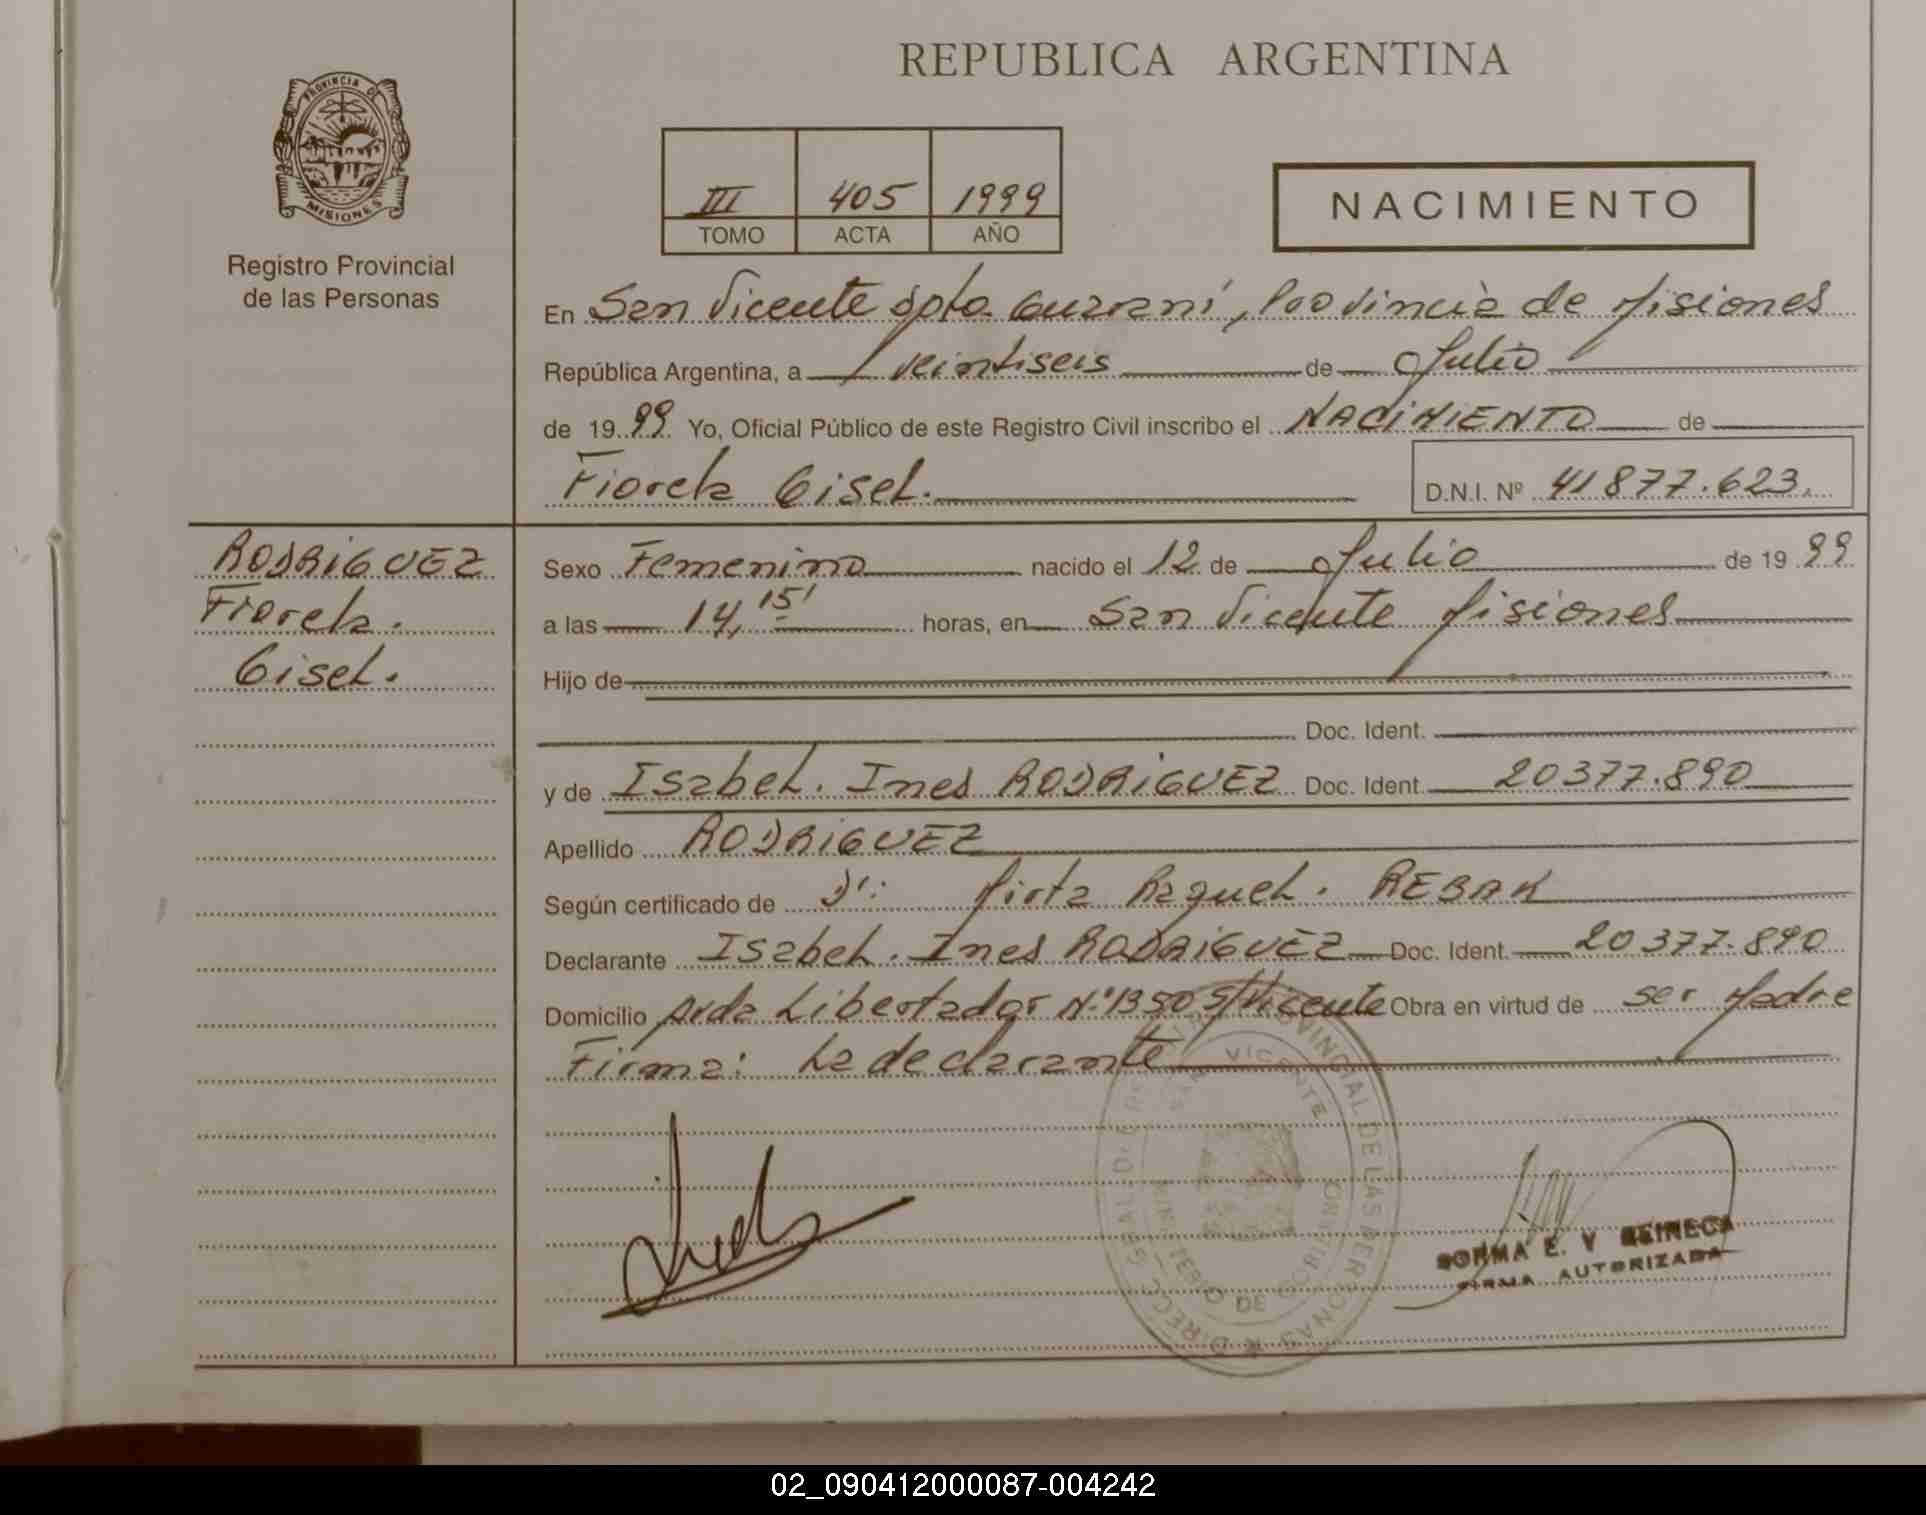 REPUBLICA ARGENTINA
PROVINCIA DE
MISIONES
Registro Provincial
de las Personas
III 405 1999
TOMO ACTA AÑO
NACIMIENTO
En San Vicente Dpto. Guarani, Provincia de Misiones
República Argentina, a veintiseis de Julio
de 1999 Yo, Oficial Público de este Registro Civil inscribo el NACIMIENTO de
Fiorela Gisel.
D.N.I. Nº 41877.623.
RODRIGUEZ
Fiorela.
Gisel.
Sexo Femenino nacido el 12 de Julio de 1999
a las 14,15' horas, en San Vicente Misiones
Hijo de
Doc. Ident.
y de Isabel. Ines RODRIGUEZ Doc. Ident. 20377.890
Apellido RODRIGUEZ
Según certificado de Mirta Raquel. REBAK
Declarante Isabel. Ines RODRIGUEZ Doc. Ident. 20377.890
Domicilio Avda Libertador N.º 1350 S/Vicente Obra en virtud de ser Madre
Firma: La declarante
PROVINCIAL DE LAS PERSONAS
SAN VICENTE
NORMA E. V REINECA
FIRMA AUTORIZADA
02_090412000087-004242